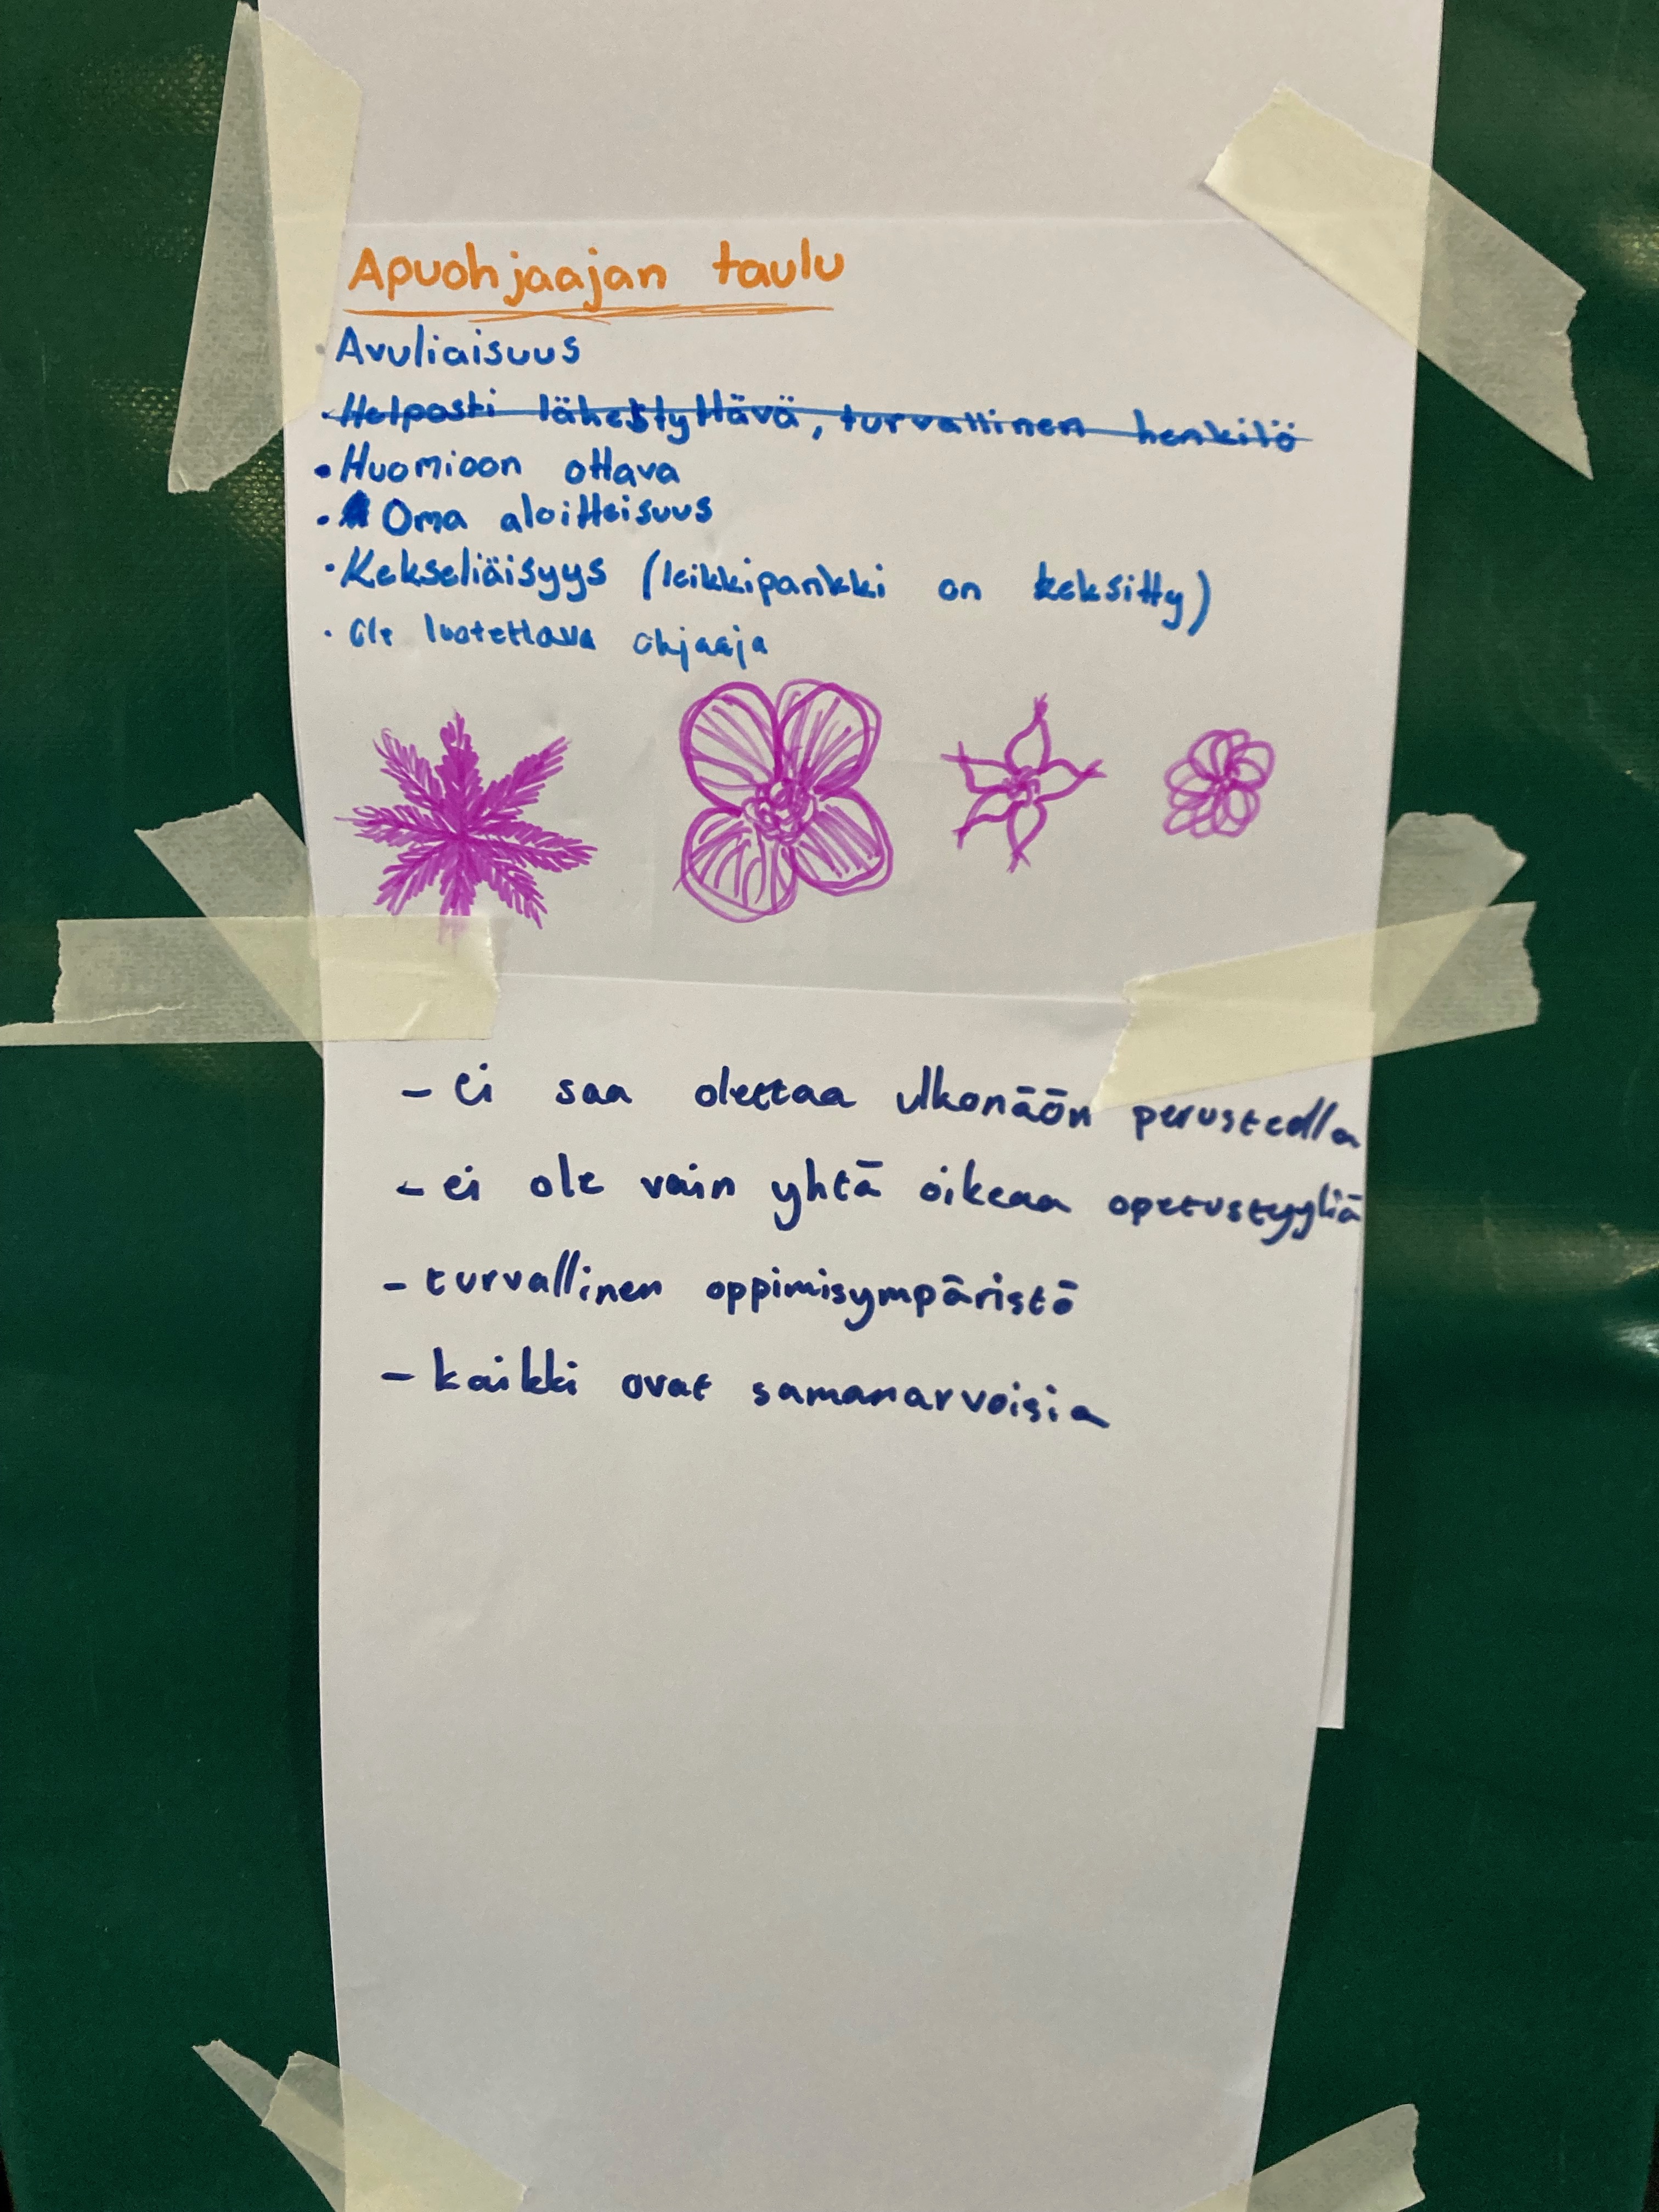 Apuohjaajan taulu
· Avuliaisuus
· Helposti lähestyttävä, turvallinen henkilö
• Huomioon ottava
• Oma aloitteisuus
· Kekseliäisyys (leikkipankki on keksitty)
· Ole luotettava ohjaaja
- ei saa olettaa ulkonäön perusteella
- ei ole vain yhtä oikeaa opetustyyliä
- turvallinen oppimisympäristö
- kaikki ovat samanarvoisia